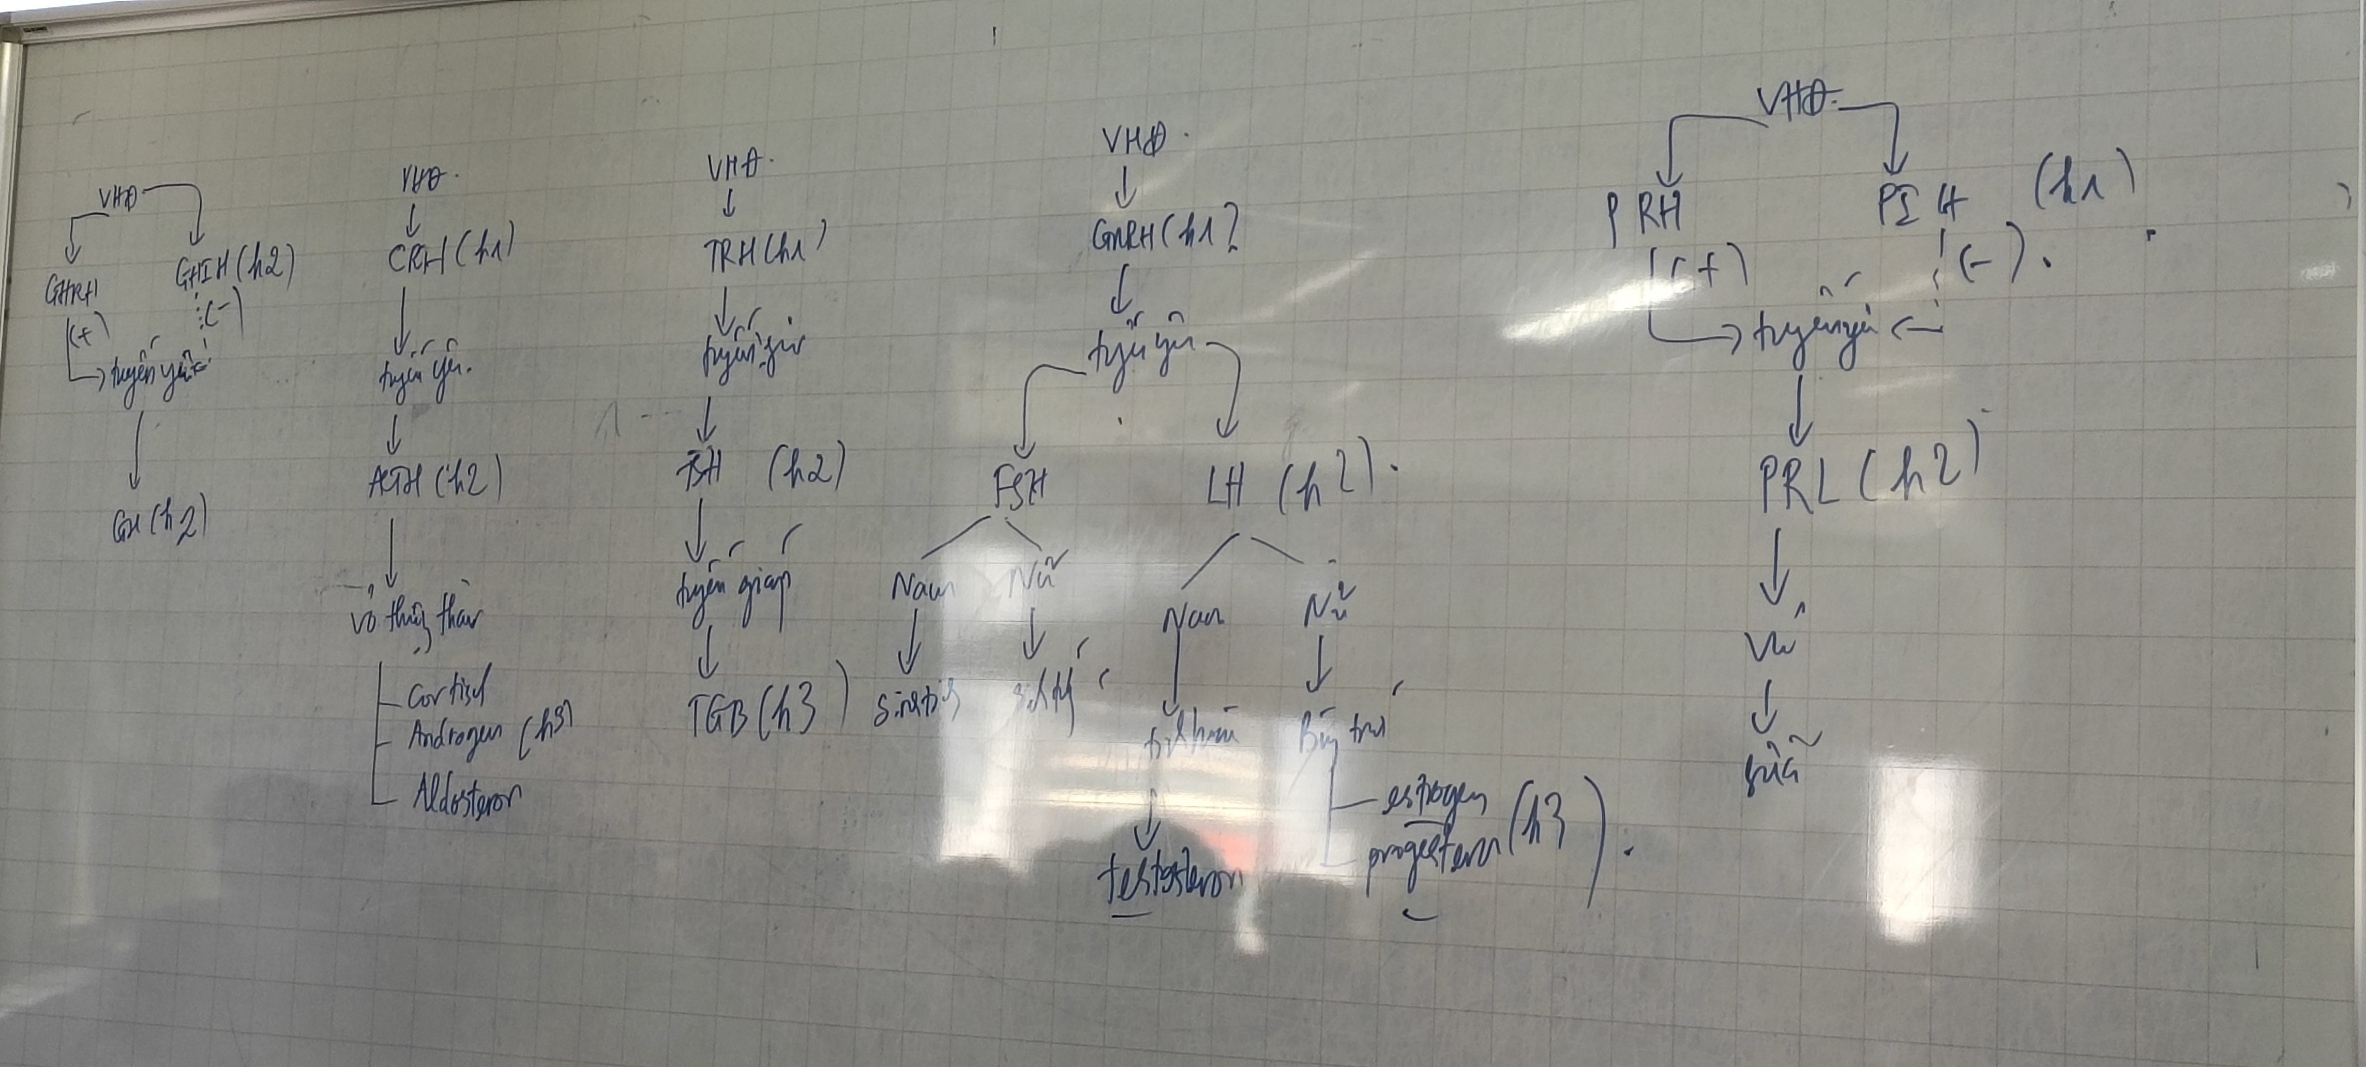 VHĐ
GHRH
GHIH (h2)
(+)
(-)
tuyến yên
GH (h2)
VHĐ.
CRH (h1)
tuyến yên.
ACTH (h2)
vỏ thượng thận
Cortisol
Androgen (h3)
Aldosteron
VHĐ.
TRH (h1)
tuyến yên
TSH (h2)
tuyến giáp
TGB (h3)
VHĐ.
GnRH (h1)
tuyến yên
FSH
LH (h2).
Nam
Nữ
Nam
Nữ
testosteron
estrogen
progesteron (h3).
VHĐ
PRH
PIH (h1)
(+)
(-).
tuyến yên
PRL (h2)
Vú
sữa